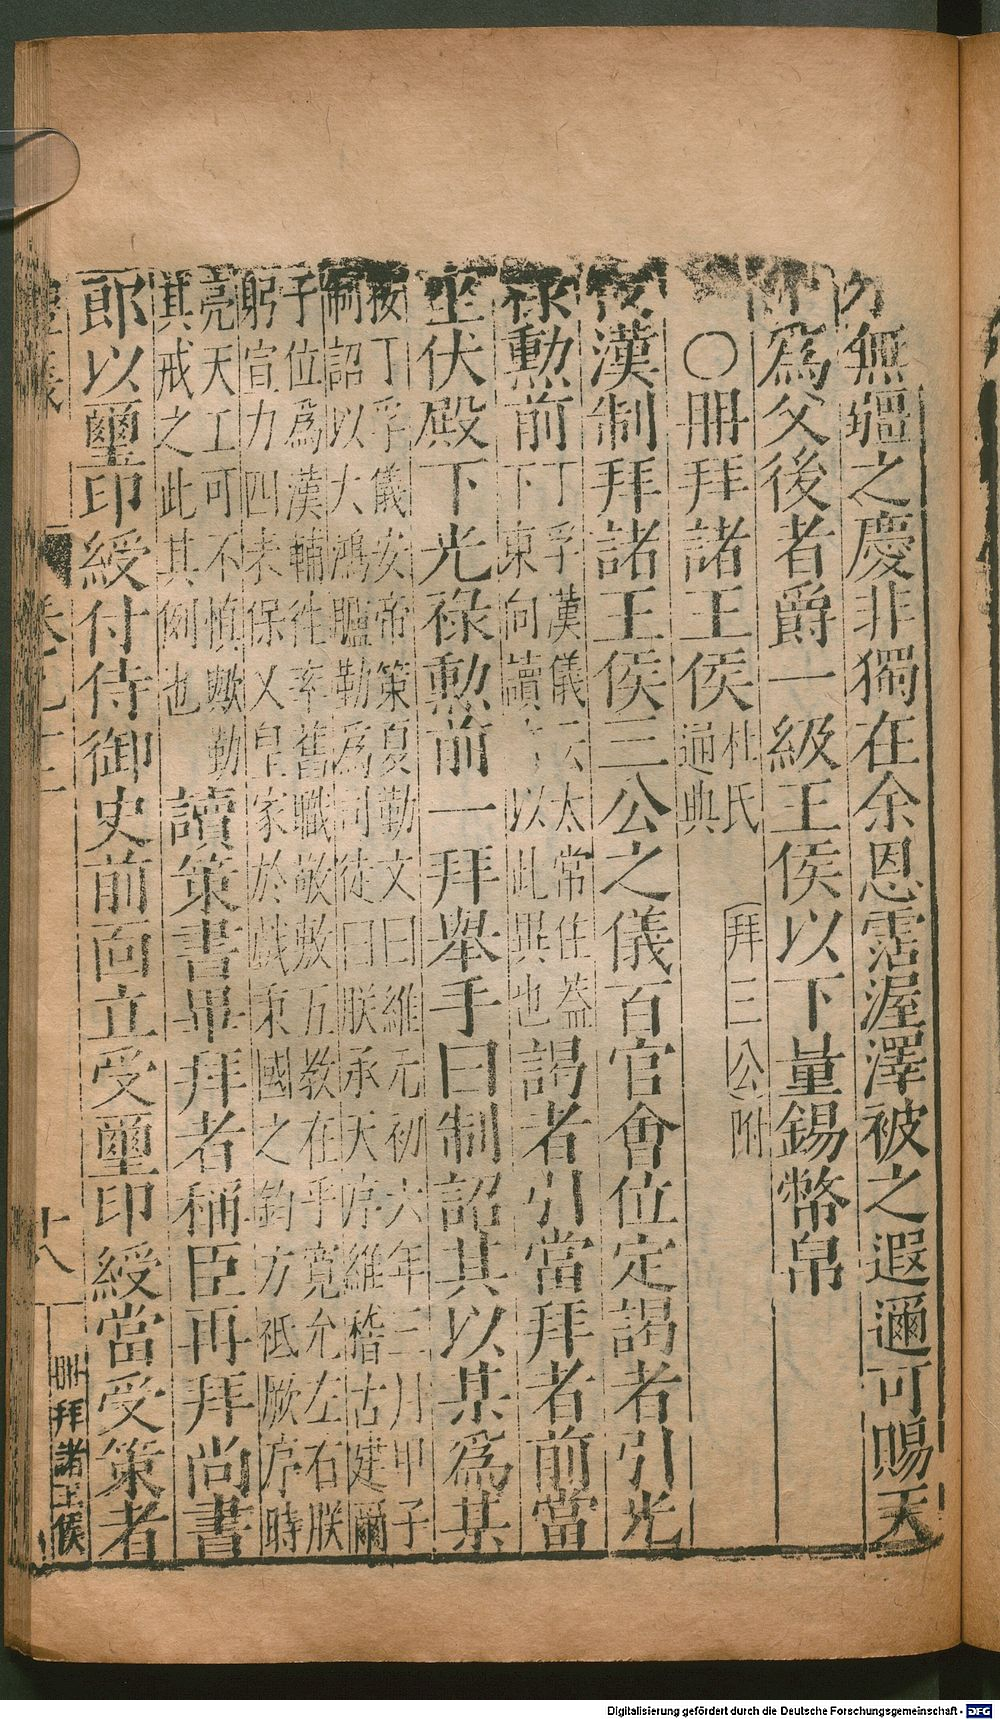 無疆之慶非獨在余恩霑渥澤被之遐邇可賜天
爲父後者爵一級王侯以下量錫幣帛
〇冊拜諸王侯 杜氏
通典 拜三公附
後漢制拜諸王侯三公之儀百官會位定謁者引光
祿勳前 丁孚漢儀云太常住葢
下東向讀 以此異也 謁者引當拜者前當
坐伏殿下光祿勳前一拜舉手曰制詔其以某爲某
按丁孚儀安帝策夏勤文曰維元初六年三月甲子
制詔以大鴻臚勤爲司徒曰朕承天序維稽古建爾
子位爲漢輔徃率舊職敬敷五教在乎寬允左右朕
躬宣力四表保乂皇家於戲秉國之鈞方祗厥序時
亮天工可不慎歟勤
其戒之此其例也 讀策書畢拜者稱臣再拜尚書
郎以璽印綬付侍御史前面立受璽印綬當受策者
十八
冊拜諸王侯
Digitalisierung gefördert durch die Deutsche Forschungsgemeinschaft - DFG